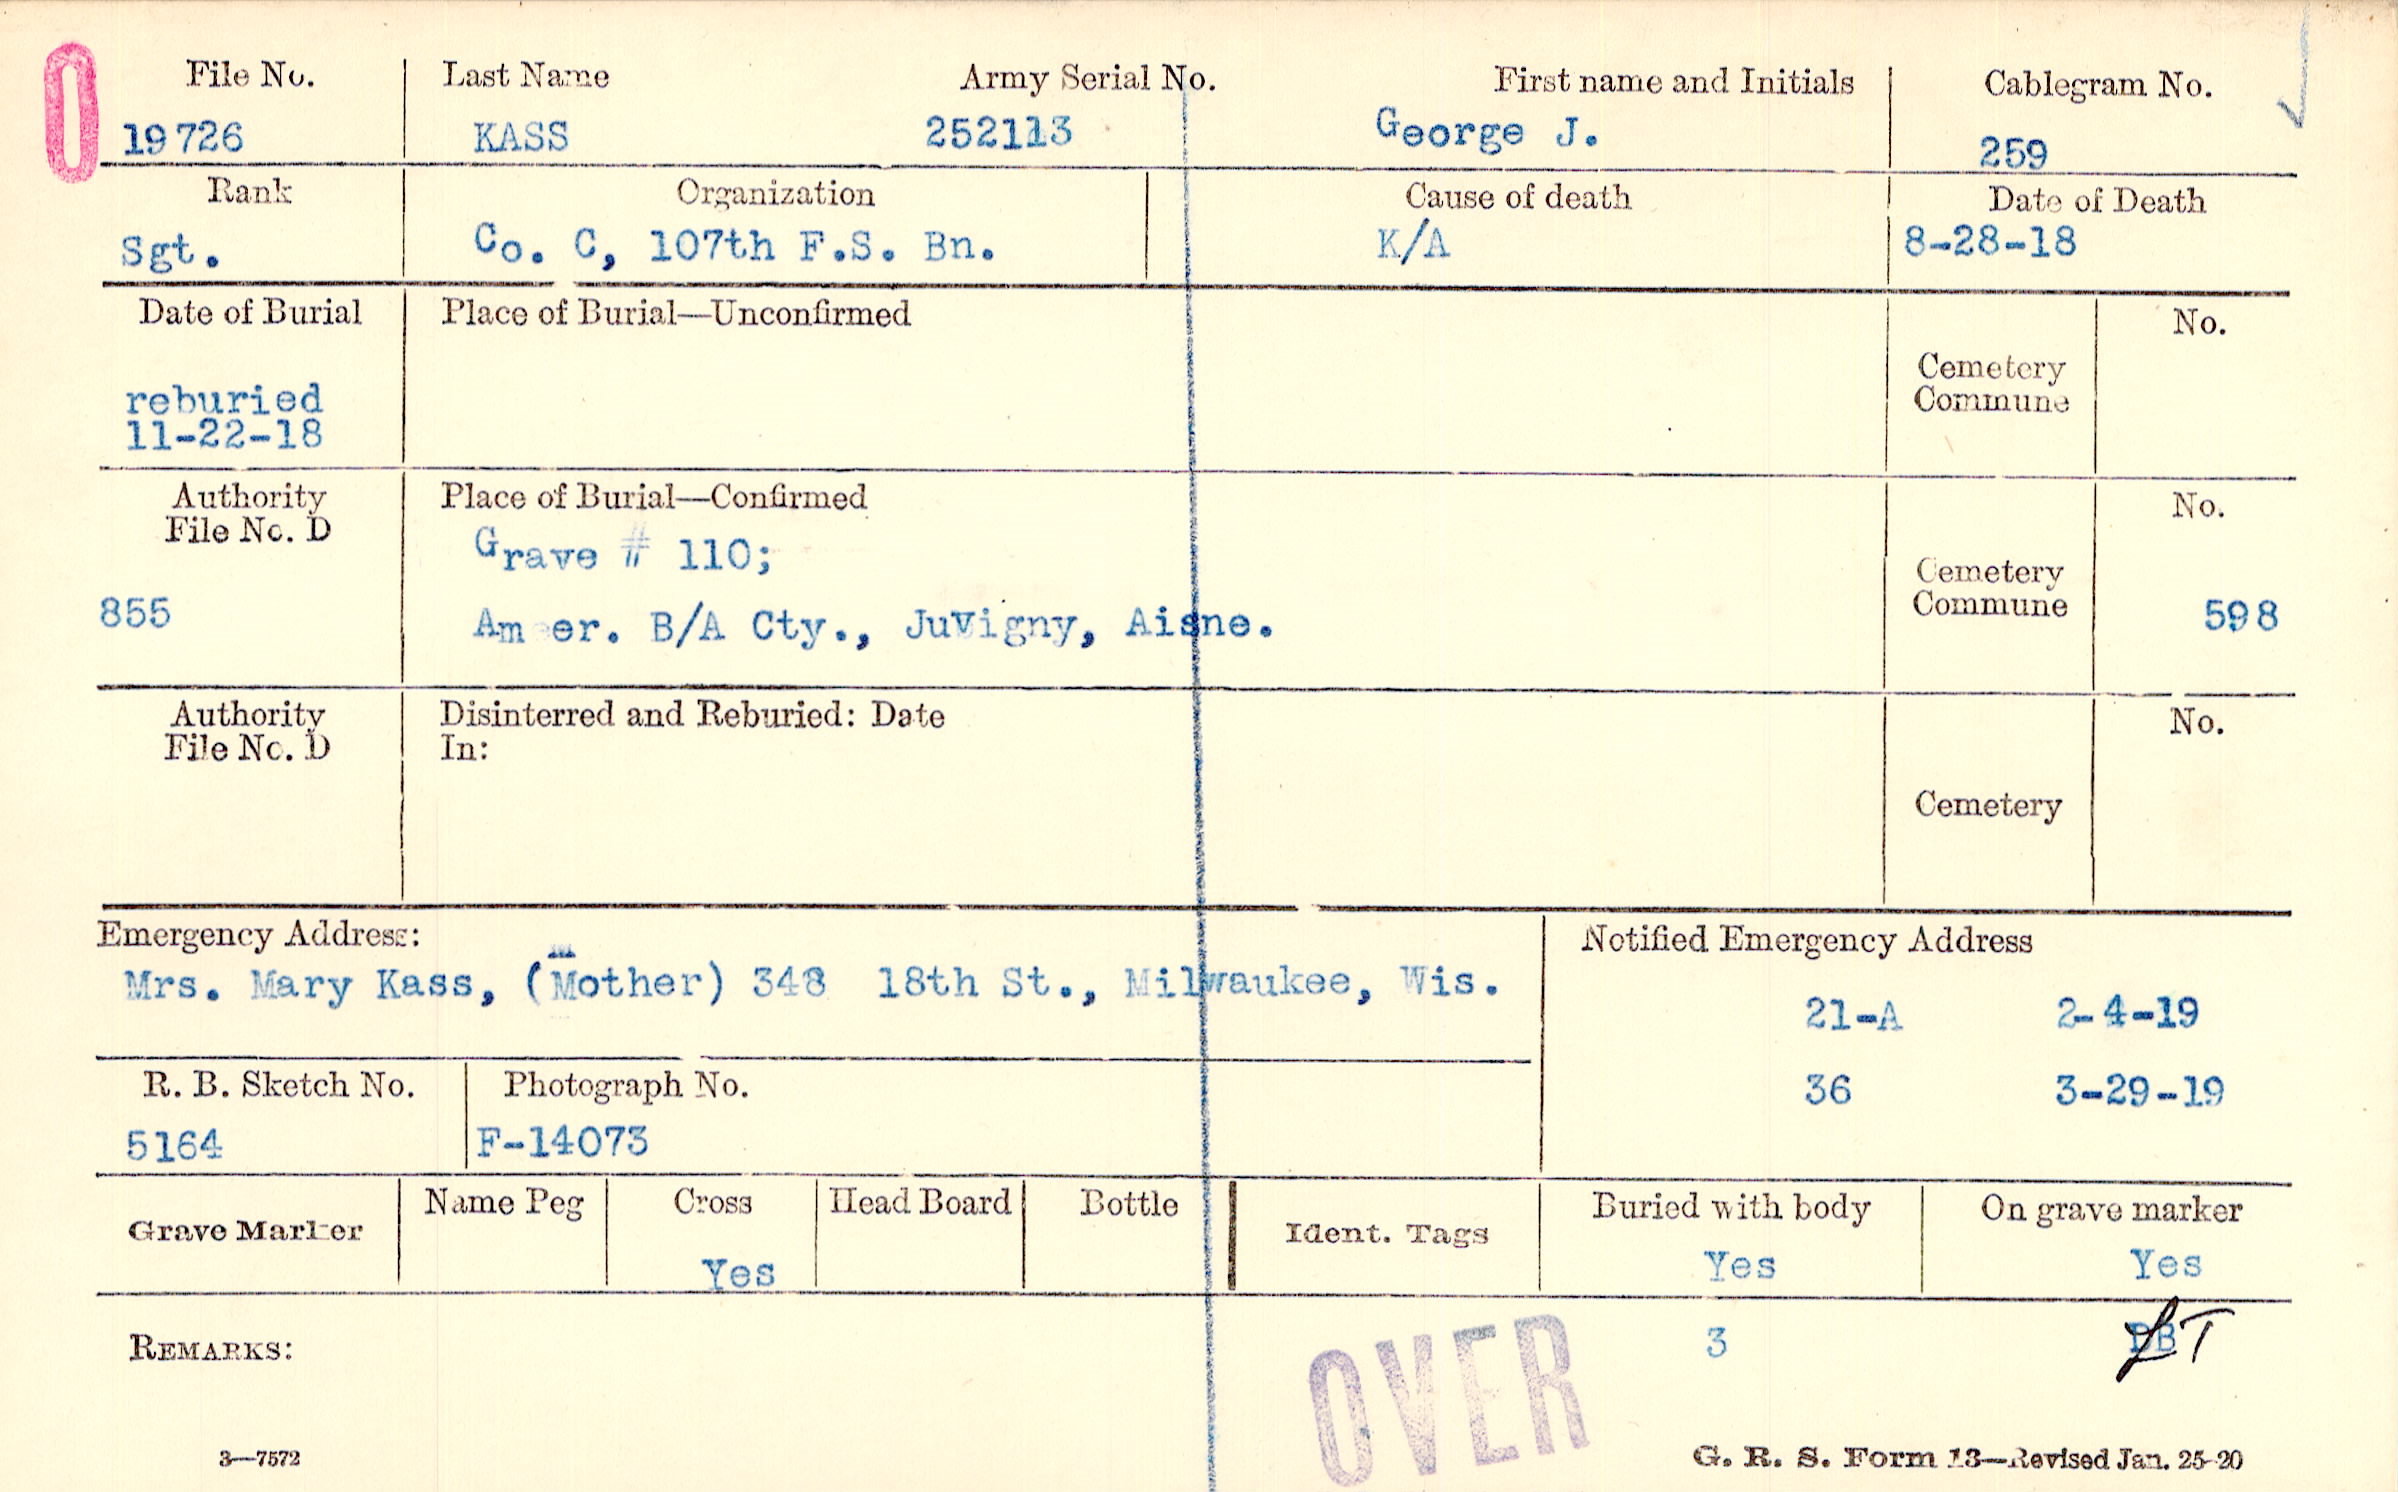 0
File No. Last Name Army Serial No. First name and Initials Cablegram No.
19726 KASS 252113 George J. 259
Rank Organization Cause of death Date of Death
Sgt. Co. C, 107th F.S. Bn. K/A 8-28-18
Date of Burial Place of Burial—Unconfirmed No.
Cemetery
Commune
reburied
11-22-18
Authority Place of Burial—Confirmed No.
File No. D
Grave # 110;
Cemetery
Commune
855 Am er. B/A Cty., JuVigny, Aisne. 598
Authority Disinterred and Reburied: Date No.
File No. D In:
Cemetery
Emergency Address: Notified Emergency Address
Mrs. Mary Kass, (Mother) 348 18th St., Milwaukee, Wis.
21-A 2-4-19
36 3-29-19
R. B. Sketch No. Photograph No.
5164 F-14073
Grave Marker Name Peg Cross Head Board Bottle Ident. Tags Buried with body On grave marker
Yes Yes Yes
REMARKS: 3 LT
OVER
3—7572 G. R. S. Form 13—Revised Jan. 25-20